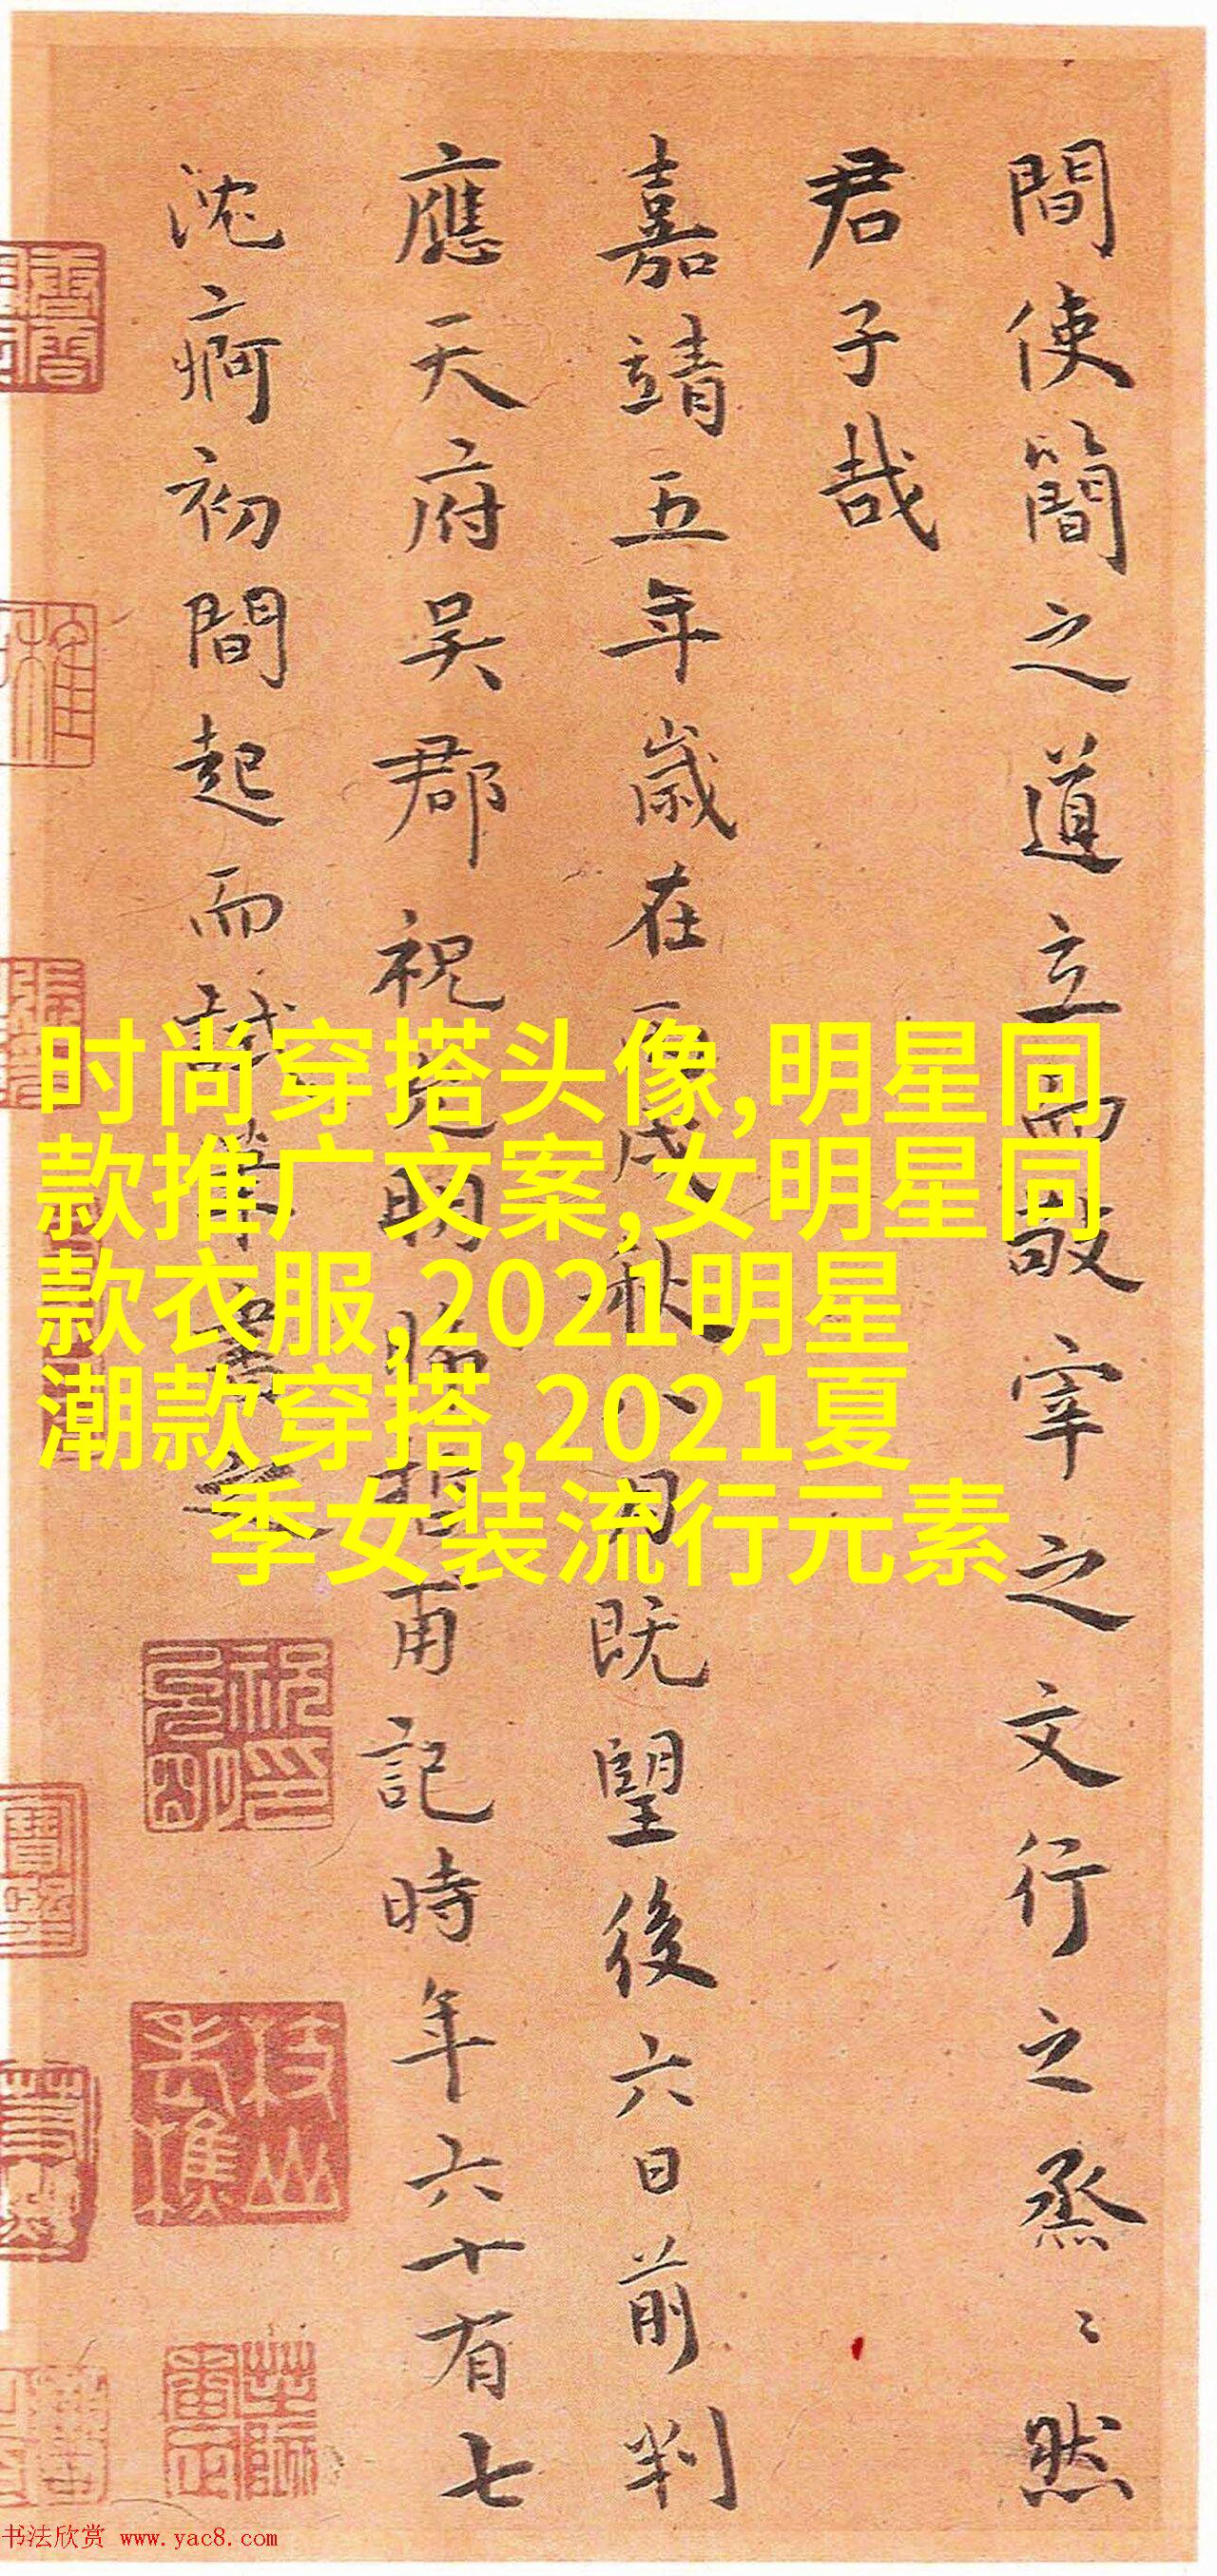 間使簡之道立而敬宰之文行之烝〻然
君子哉
嘉靖五年歲在丙戌秋八月既望後六日前判
應天府吳郡祝允明記時年六十有七
沈痾初間起而試筆書之
时尚穿搭头像,明星同
款推广文案,女明星同
款衣服,2021明星
潮款穿搭,2021夏
季女装流行元素
书法欣赏 www.yac8.com